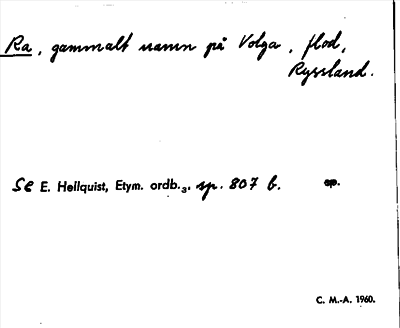 Ra, gammalt namn på Volga, flod,
Ryssland.
Se E. Hellquist, Etym. ordb.3, sp. 807 b. sp.
C. M.-A. 1960.